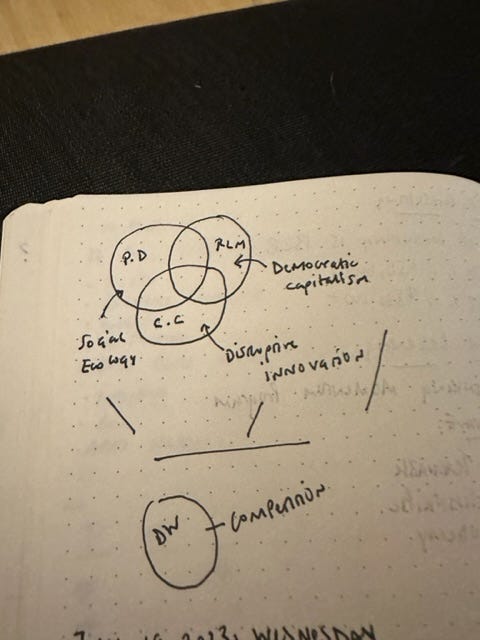 P.D
RLM
Democratic
capitalism
C.C
Social
Ecology
Disruptive
INNOVATION
DW
COMPETITION
2023, WEDNESDAY